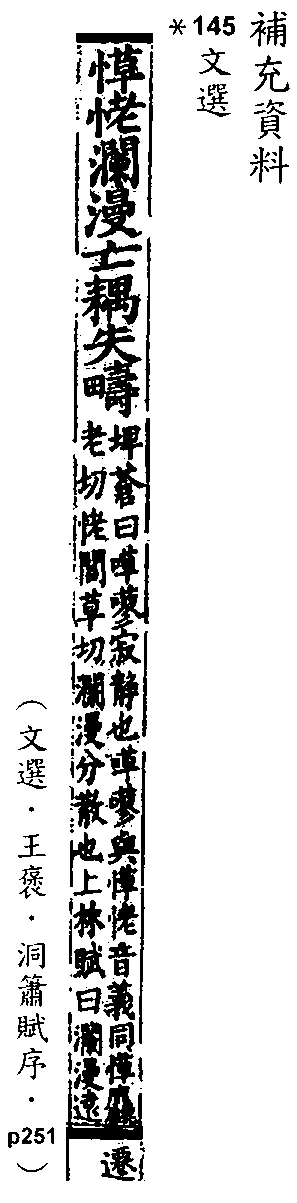 補充資料
*145
文選
愺恅瀾漫亡耦失疇
埤蒼曰嗼寂靜也與愺恅音義同愺
老切恅閭草切瀾漫分散也上林賦曰瀾漫遠
遷
(文選·王褒·洞簫賦序·
p251)